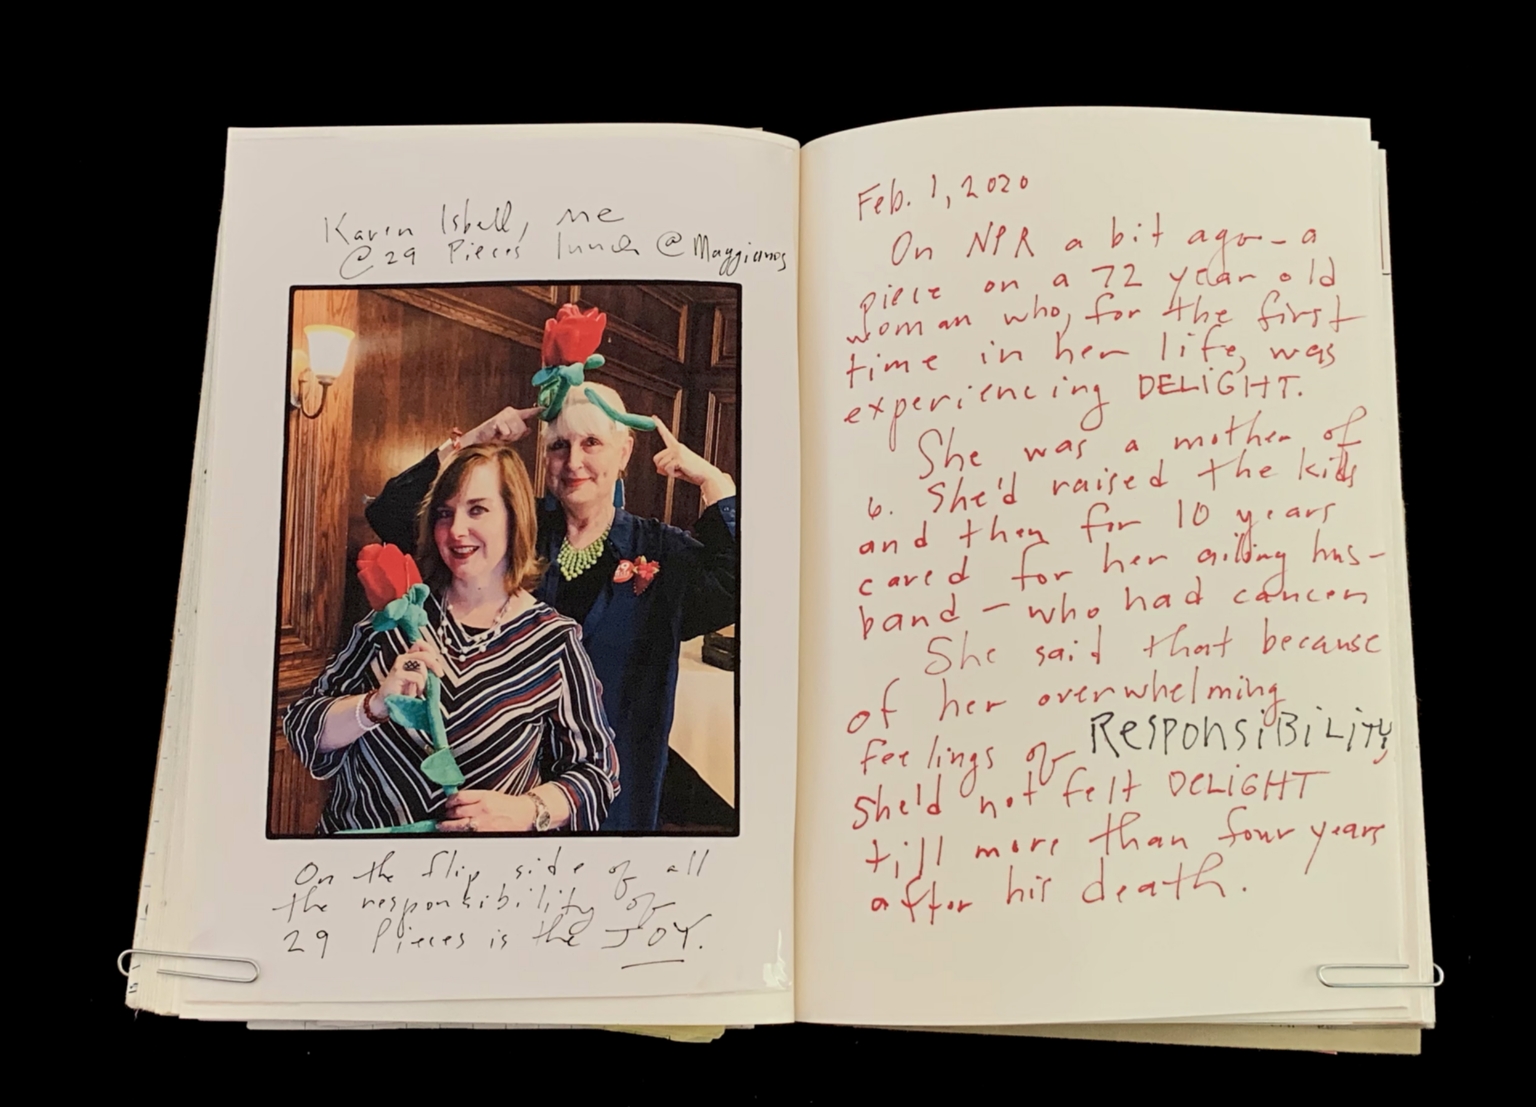 Karen Isbell, me
@ 29 Pieces lunch @ Maggianos
On the flip side of all
the responsibility of
29 Pieces is the JOY.
Feb. 1, 2020
On NPR a bit ago - a
piece on a 72 year old
woman who, for the first
time in her life, was
experiencing DELIGHT.
She was a mother of
6. She'd raised the kids
and then for 10 years
cared for her ailing hus-
band - who had cancer
She said that because
of her overwhelming
feelings of RESPONSIBILITY,
she'd not felt DELIGHT
till more than four years
after his death.